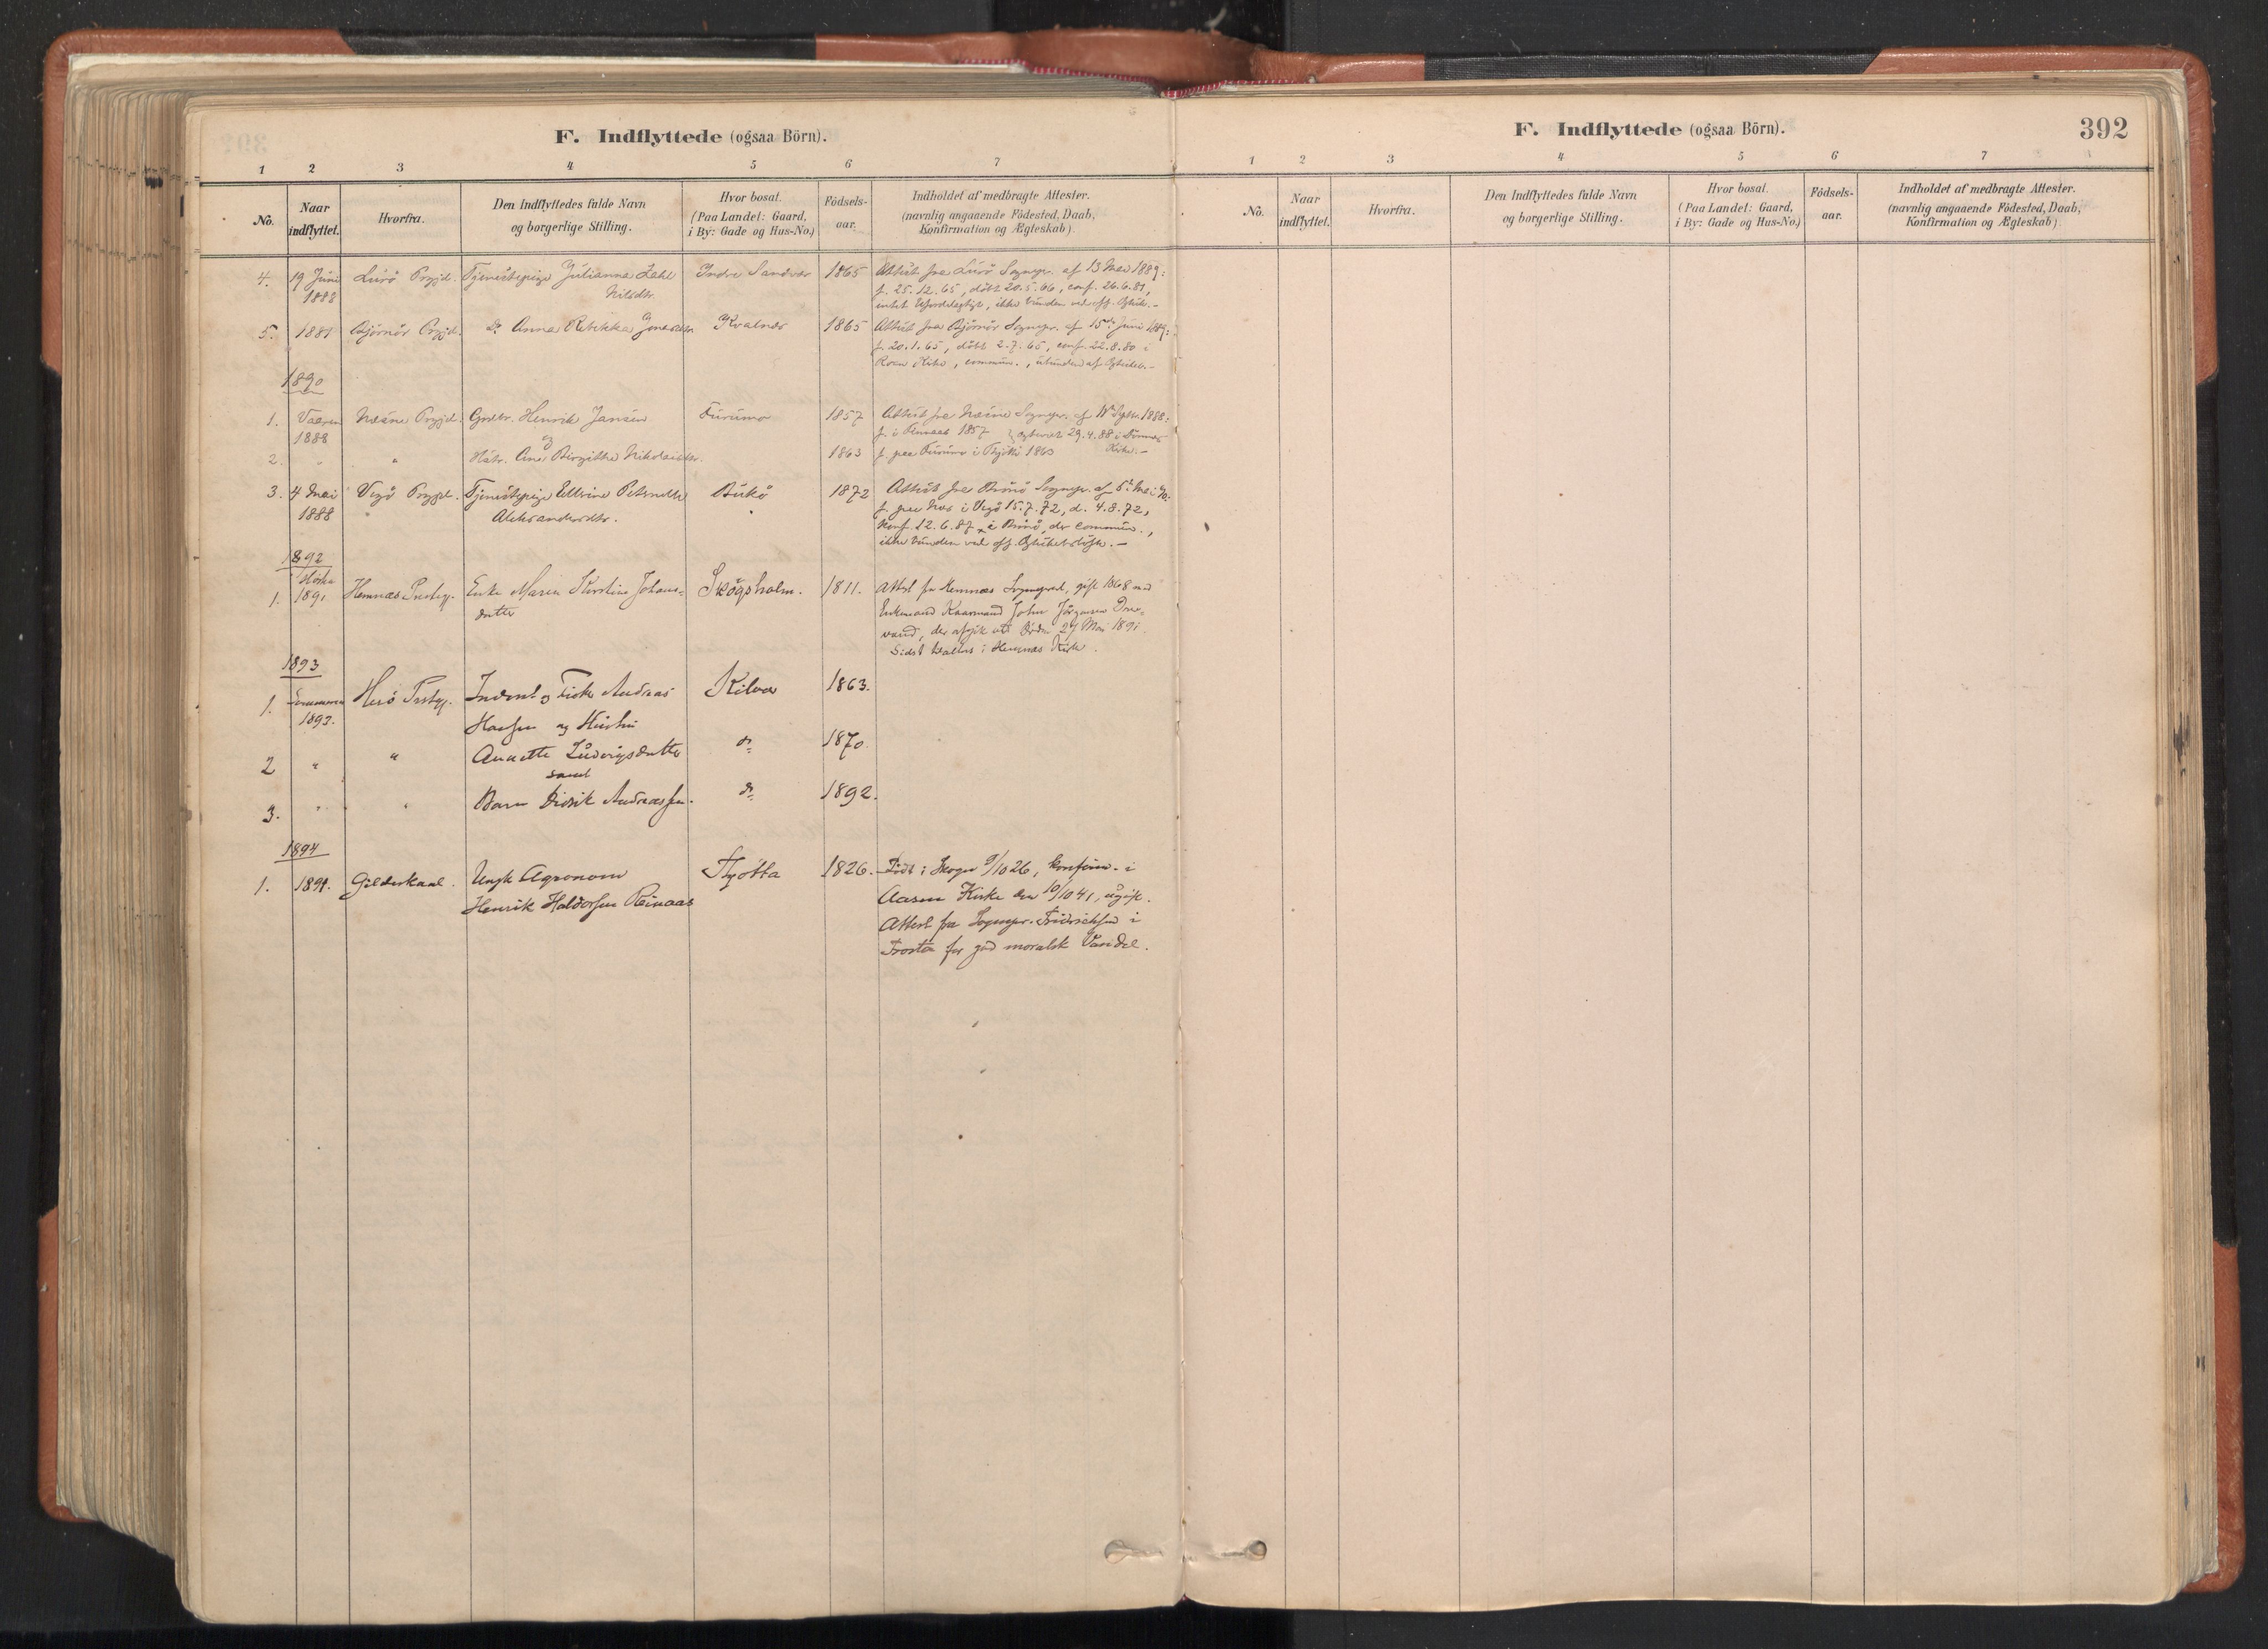 F. Indflyttede (ogsaa Börn).
1 2 3 4 5 6 7
No.
Naar indflyttet.
Hvorfra.
Den Indflyttedes fulde Navn
og borgerlige Stilling.
Hvor bosat.
(Paa Landet: Gaard,
i By: Gade og Hus-No.)
Födsels-
aar.
Indholdet af medbragte Attester.
(navnlig angaaende Födested, Daab,
Konfirmation og Ægteskab)
4. 19 Juni Lurö Prgjd. Tjenestepige Julianna Indre Sandvær 1865 Attest fra Lurö Sognepr. af 13 Mai 1889:
1888 Nilsdtr. f. 25.12.65, döbt 20.5.66, conf. 26.6.81,
intet ufordelagtigt, ikke bunden ved
5. 1881 Bjørnør Prgjd. do Anna Rebekka Kvalnes 1865 Attest fra Bjørnør Sognepr. af 15de Juni 1889:
f. 20.1.65, döbt 2.7.65, conf. 22.8.80 i
Kirke, commun.,
1890
1. Vaaren Næsne Prgjd. Gmdr. Henrik Jansen Furumo 1857 Attest fra Næsne Sognepr. af Septr. 1888:
1888 og f. i 1857 29.4.88 i Dønnes
2. " " Hstr. Ane Birgitte Nikolaidtr. 1863 f. paa Furumo i Thjøttø 1863 Kirke.-
3. 4 Mai Vegö Prgjd. Tjenestepige Ellevine Petrnelle Bukö 1872 Attest fra Brönö Sognepr. af 5te Mai
1888 Aleksandersdtr. f. paa i Vegö 15.7.72, d. 4.8.72,
Konf. 12.6.87 i Brönö, der commun.,
ikke bunden ved off. -
1892
Høsten
1. 1891 Hemnæs Prestegj. Enke Maren Kirstine Johans- Skogsholm. 1811. Attest fra Hemnæs Sogneprest, gift 1868 med
datter Enkemand Kaarmand John Jørgensen
vand, der afgik ved Døden 27 Mai 1891.
Sidst i Hemnæs Kirke.
1893
1. Sommeren Herö Prstgj. Inderst og Fisker Andreas Kilvær 1863.
1893. Hansen og Hustru
2 " " Annette Ludvigsdatter do 1870.
samt
3. " " Barn Didrik Andreassen. do 1892.
1894
1. 1891. Gildeskaal. Ungk. Agronom Thjøtta 1826. Født i Skogn 9/10 26, konfirm. i
Henrik Haldorsen Reinaas Aasen Kirke den 10/10 41, ugift.
Attest fra Sognepr. Fridrichsen i
Frosta for god moralsk Vandel.
F. Indflyttede (ogsaa Börn).
392
1 2 3 4 5 6 7
No.
Naar indflyttet.
Hvorfra.
Den Indflyttedes fulde Navn
og borgerlige Stilling.
Hvor bosat.
(Paa Landet: Gaard,
i By: Gade og Hus-No.)
Födsels-
aar.
Indholdet af medbragte Attester.
(navnlig angaaende Födested, Daab,
Konfirmation og Ægteskab)